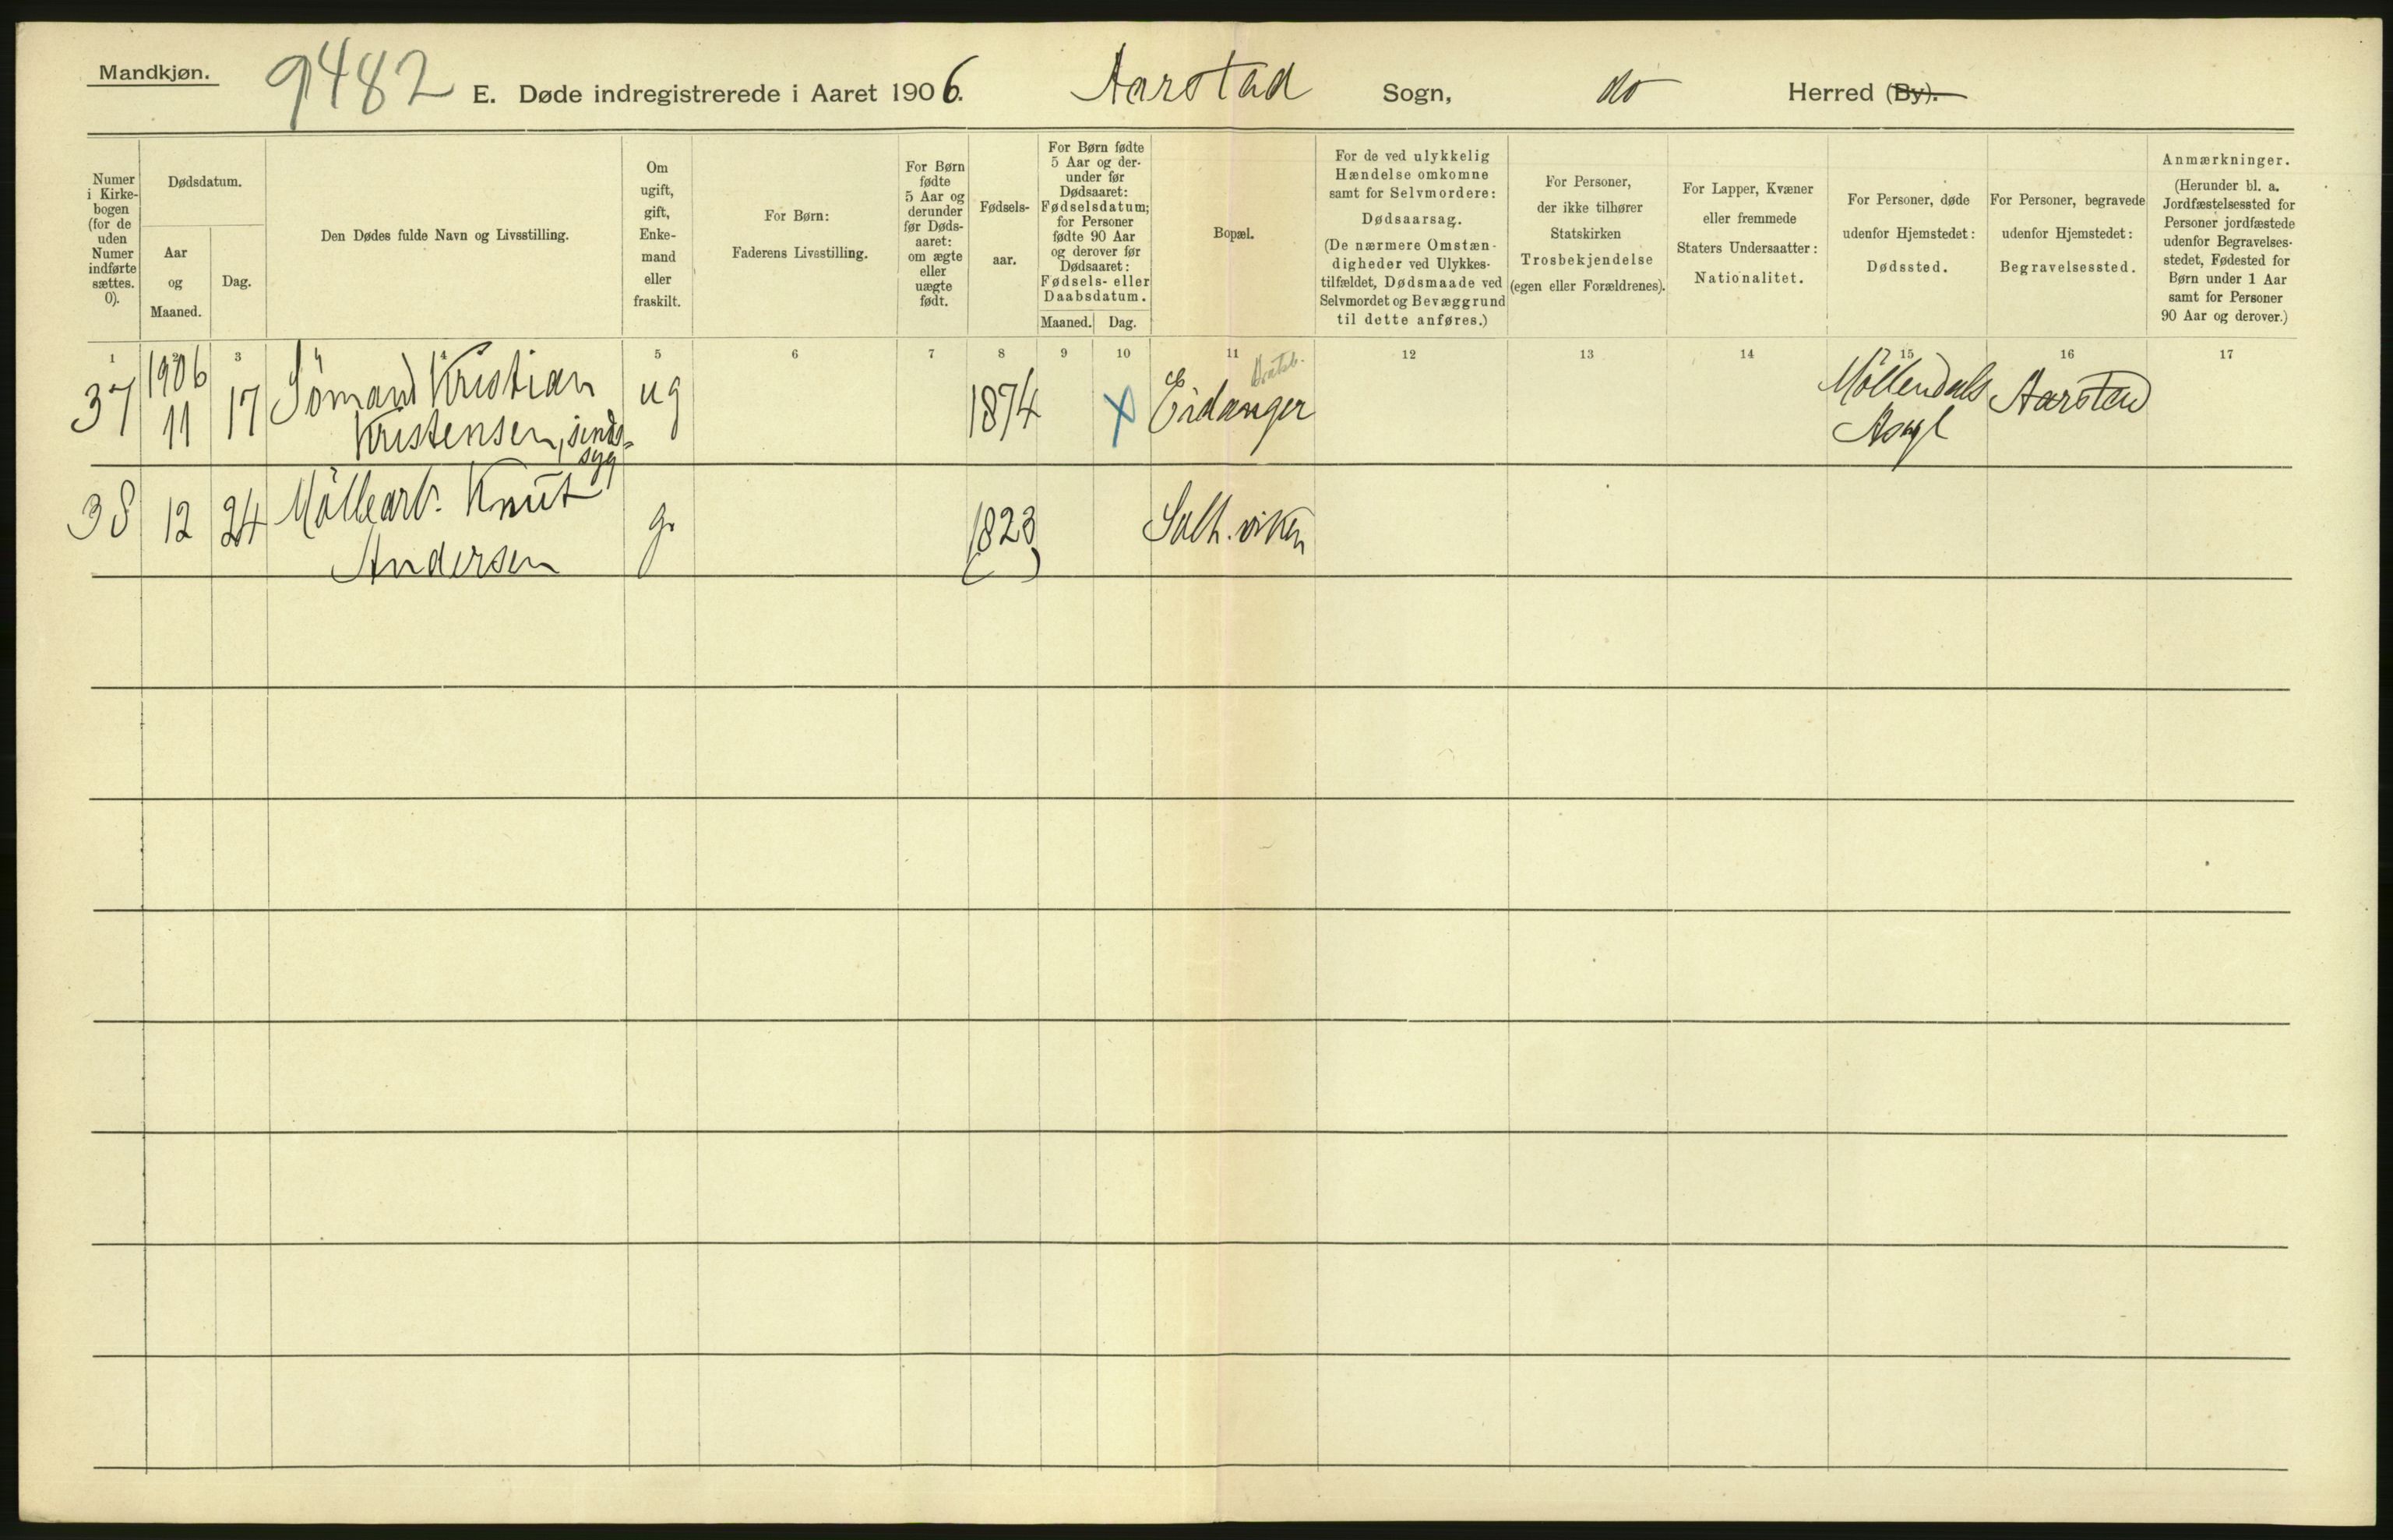 Mandkjøn.
9482 E. Døde indregistrerede i Aaret 1906. Aarstad Sogn, do Herred (By).
Numer
i Kirke-
bogen
(for de
uden
Numer
indførte
sættes.
0).
Dødsdatum.
Aar
og
Maaned.
Dag.
Den Dødes fulde Navn og Livsstilling.
Om
ugift,
gift,
Enke-
mand
eller
fraskilt.
For Børn:
Faderens Livsstilling.
For Børn
fødte
5 Aar og
derunder
før Døds-
aaret:
om ægte
eller
uægte
født.
Fødsels-
aar.
For Børn fødte
5 Aar og der-
under før
Dødsaaret:
Fødselsdatum;
for Personer
fødte 90 Aar
og derover før
Dødsaaret:
Fødsels- eller
Daabsdatum.
Maaned. Dag.
Bopæl.
For de ved ulykkelig
Hændelse omkomne
samt for Selvmordere:
Dødsaarsag.
(De nærmere Omstæn-
digheder ved Ulykkes-
tilfældet, Dødsmaade ved
Selvmordet og Bevæggrund
til dette anføres.)
For Personer,
der ikke tilhører
Statskirken
Trosbekjendelse
(egen eller Forældrenes).
For Lapper, Kvæner
eller fremmede
Staters Undersaatter:
Nationalitet.
For Personer, døde
udenfor Hjemstedet:
Dødssted.
For Personer, begravede
udenfor Hjemstedet:
Begravelsessted.
Anmærkninger.
(Herunder bl. a.
Jordfæstelsessted for
Personer jordfæstede
udenfor Begravelses-
stedet, Fødested for
Børn under 1 Aar
samt for Personer
90 Aar og derover.)
1 2 3 4 5 6 7 8 9 10 11 12 13 14 15 16 17
37
1906
11
17
Sömand Kristian
Kristensen, sinds-
syg
ug
1874
X
Bratsb.
Eidanger
Möllendals
Asyl
Aarstad
38
12
24
Möllearb. Knut
Andersen
g.
1823
Salh.viken